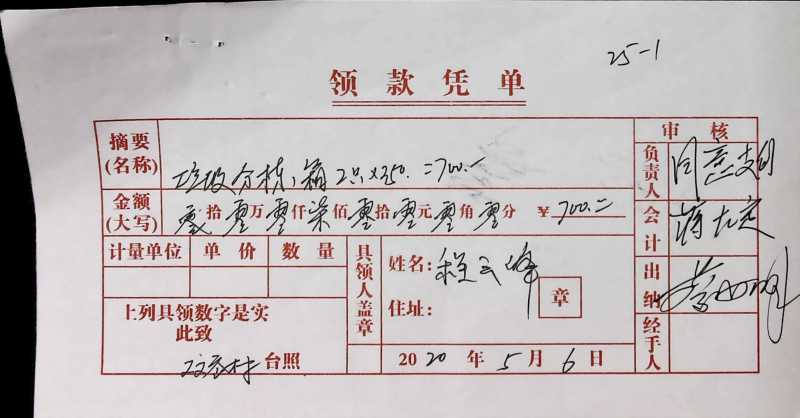 25-1
领款凭单
摘要(名称) 垃圾分拣箱 2只×350.=700.-
审核
负责人 同意支付
金额(大写) 零拾零万零仟柒佰零拾零元零角零分 ¥700.=
会计
计量单位 单价 数量
具领人盖章
姓名: 程云峰
住址:
章
出纳
上列具领数字是实
此致
台照
2020年5月6日
经手人